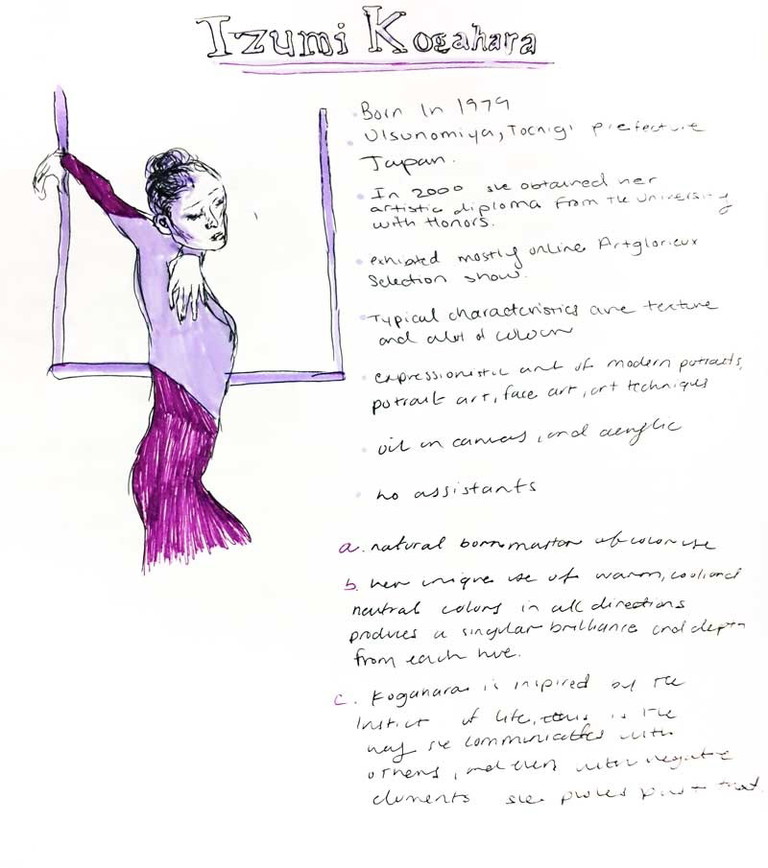 Izumi Kogahara
Born In 1979
Utsunomiya, Tochigi prefecture
Japan.
In 2000 she obtained her
artistic diploma from the University
with Honors.
exhibited mostly online Artglorieux
Selection show.
Typical characteristics are texture
and alot of colour
expressionistic art of modern potraits,
potrait art, face art, art techniques
oil on canvas, and acrylic
no assistants
a. natural born master of color use
b. her unique use of warm, cool and
neutral colors in all directions
produces a singular brilliance and depth
from each hue.
c. Kogahara is inspired by the
Instict of life, this is the
way she communicates with
others, and even with negative
elements she